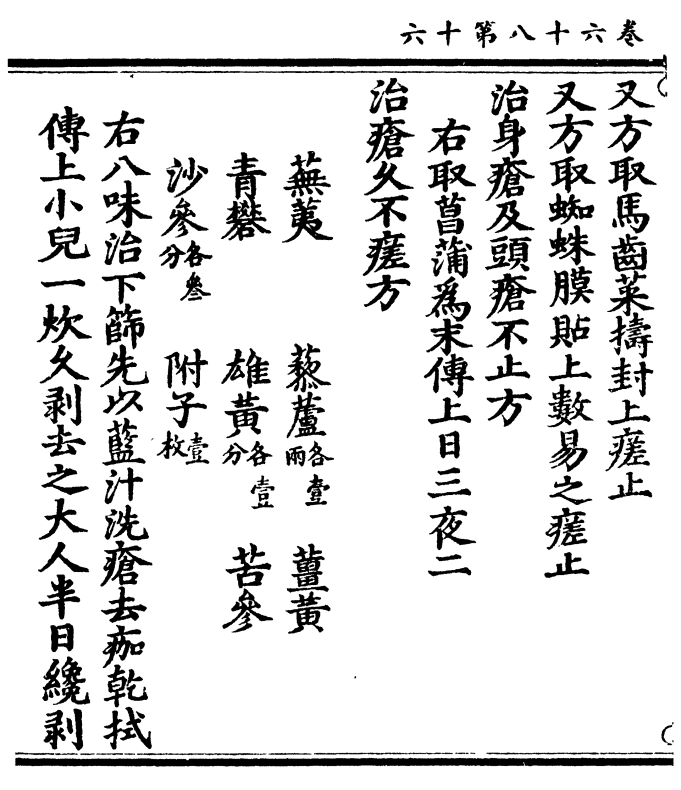 卷六十八第十六
又方取馬齒菜擣封上瘥止
又方取蜘蛛膜貼上數易之瘥止
治身瘡及頭瘡不止方
右取菖蒲爲末傅上日三夜二
治瘡久不瘥方
蕪荑 藜蘆各壹兩 薑黃
青礬 雄黃各壹分 苦參
沙參各叄分 附子壹枚
右八味治下篩先以藍汁洗瘡去痂乾拭
傅上小兒一炊久剥去之大人半日纔剥